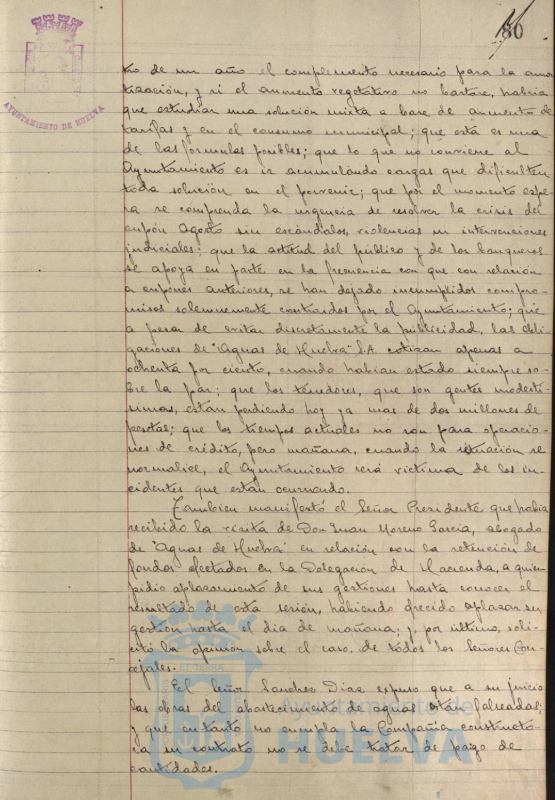 80
AYUNTAMIENTO DE HUELVA
tro de un año el complemento necesario para la amor
tización, y si el aumento vegetativo no bastare, habria
que estudiar una solución mixta a base de aumento de
tarifas y en el consumo municipal; que esta es una
de las formulas posibles; que lo que no conviene al
Ayuntamiento es ir acumulando cargas que dificulten
toda solución en el porvenir; que por el momento espe
ra se comprenda la urgencia de resolver la crisis del
cupón Agosto sin escándalos, violencias ni intervenciones
judiciales; que la actitud del público y de los banqueros
se apoya en parte en la frecuencia con que con relación
a cupones anteriores, se han dejado incumplidos compro
misos solemnemente contraidos por el Ayuntamiento; que
a pesar de evitar discretamente la publicidad, las obli
gaciones de "Aguas de Huelva" S.A. cotizan apenas a
ochenta por ciento, cuando habian estado siempre so
bre la par; que los tenedores, que son gentes modesti
simas, estan perdiendo hoy ya mas de dos millones de
pesetas; que los tiempos actuales no son para operacio
nes de crédito, pero mañana, cuando la situación se
normalice, el Ayuntamiento será victima de los in
cidentes que están ocurriendo.
Tambien manifestó el Señor Presidente que habia
recibido la visita de Don Juan Moreno Garcia, abogado
de "Aguas de Huelva" en relación con la retención de
fondos efectados en la Delegacion de Hacienda, a quien
pidio aplazamiento de sus gestiones hasta conocer el
resultado de esta sesión, habiendo ofrecido aplazar su
gestion hasta el dia de mañana; y, por último, soli
citó la opinión sobre el caso, de todos los Señores Con
cejales.
El Señor Sanchez Diaz expuso que a su juicio
las obras del abastecimiento de aguas están falseadas;
y que en tanto no cumpla la Compañia constructo
ra su contrato no se debe tratar de pago de
cantidades.
Ayuntamiento de
HUELVA